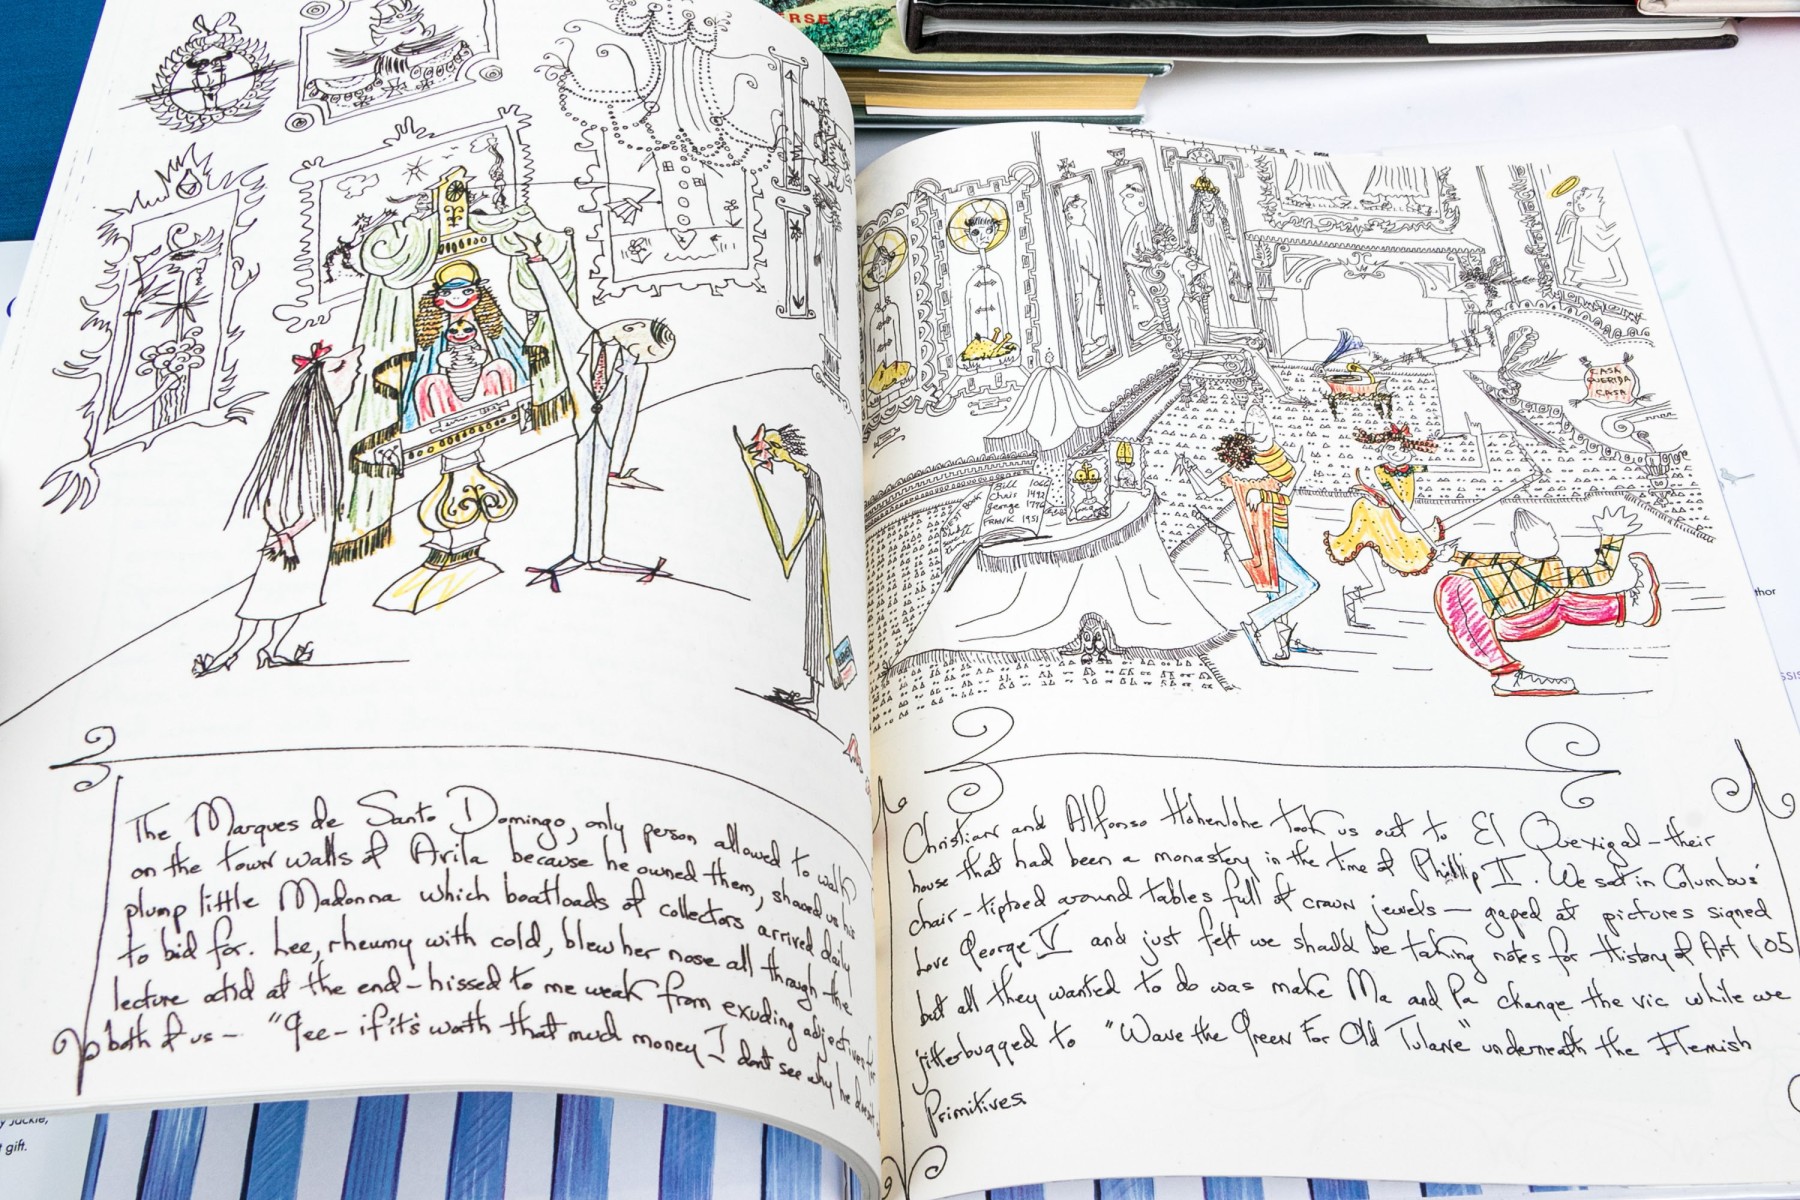 ERSE
The Marques de Santo Domingo, only person allowed to walk
on the town walls of Avila because he owned them, showed us his
plump little Madonna which boatloads of collectors arrived daily
to bid for. Lee, rheumy with cold, blew her nose all through the
lecture and at the end - hissed to me weak from exuding adjectives for
both of us - "Gee - if it's worth that much money I don't see why he doesn't
CASA
QUERIDA
CASA
Bill 1066
Chris 1492
george 1776
FRANK 1951
Christian and Alfonso Hohenlohe took us out to El Quexigal - their
house that had been a monastery in the time of Phillip II. We sat in Columbus'
chair - tiptoed around tables full of crown jewels - gaped at pictures signed
Love George V and just felt we should be taking notes for History of Art 105
but all they wanted to do was make Ma and Pa change the vic while we
jitterbugged to "Wave the Green For Old Tulane" underneath the Flemish
Primitives.
thor
y Jackie,
t gift.